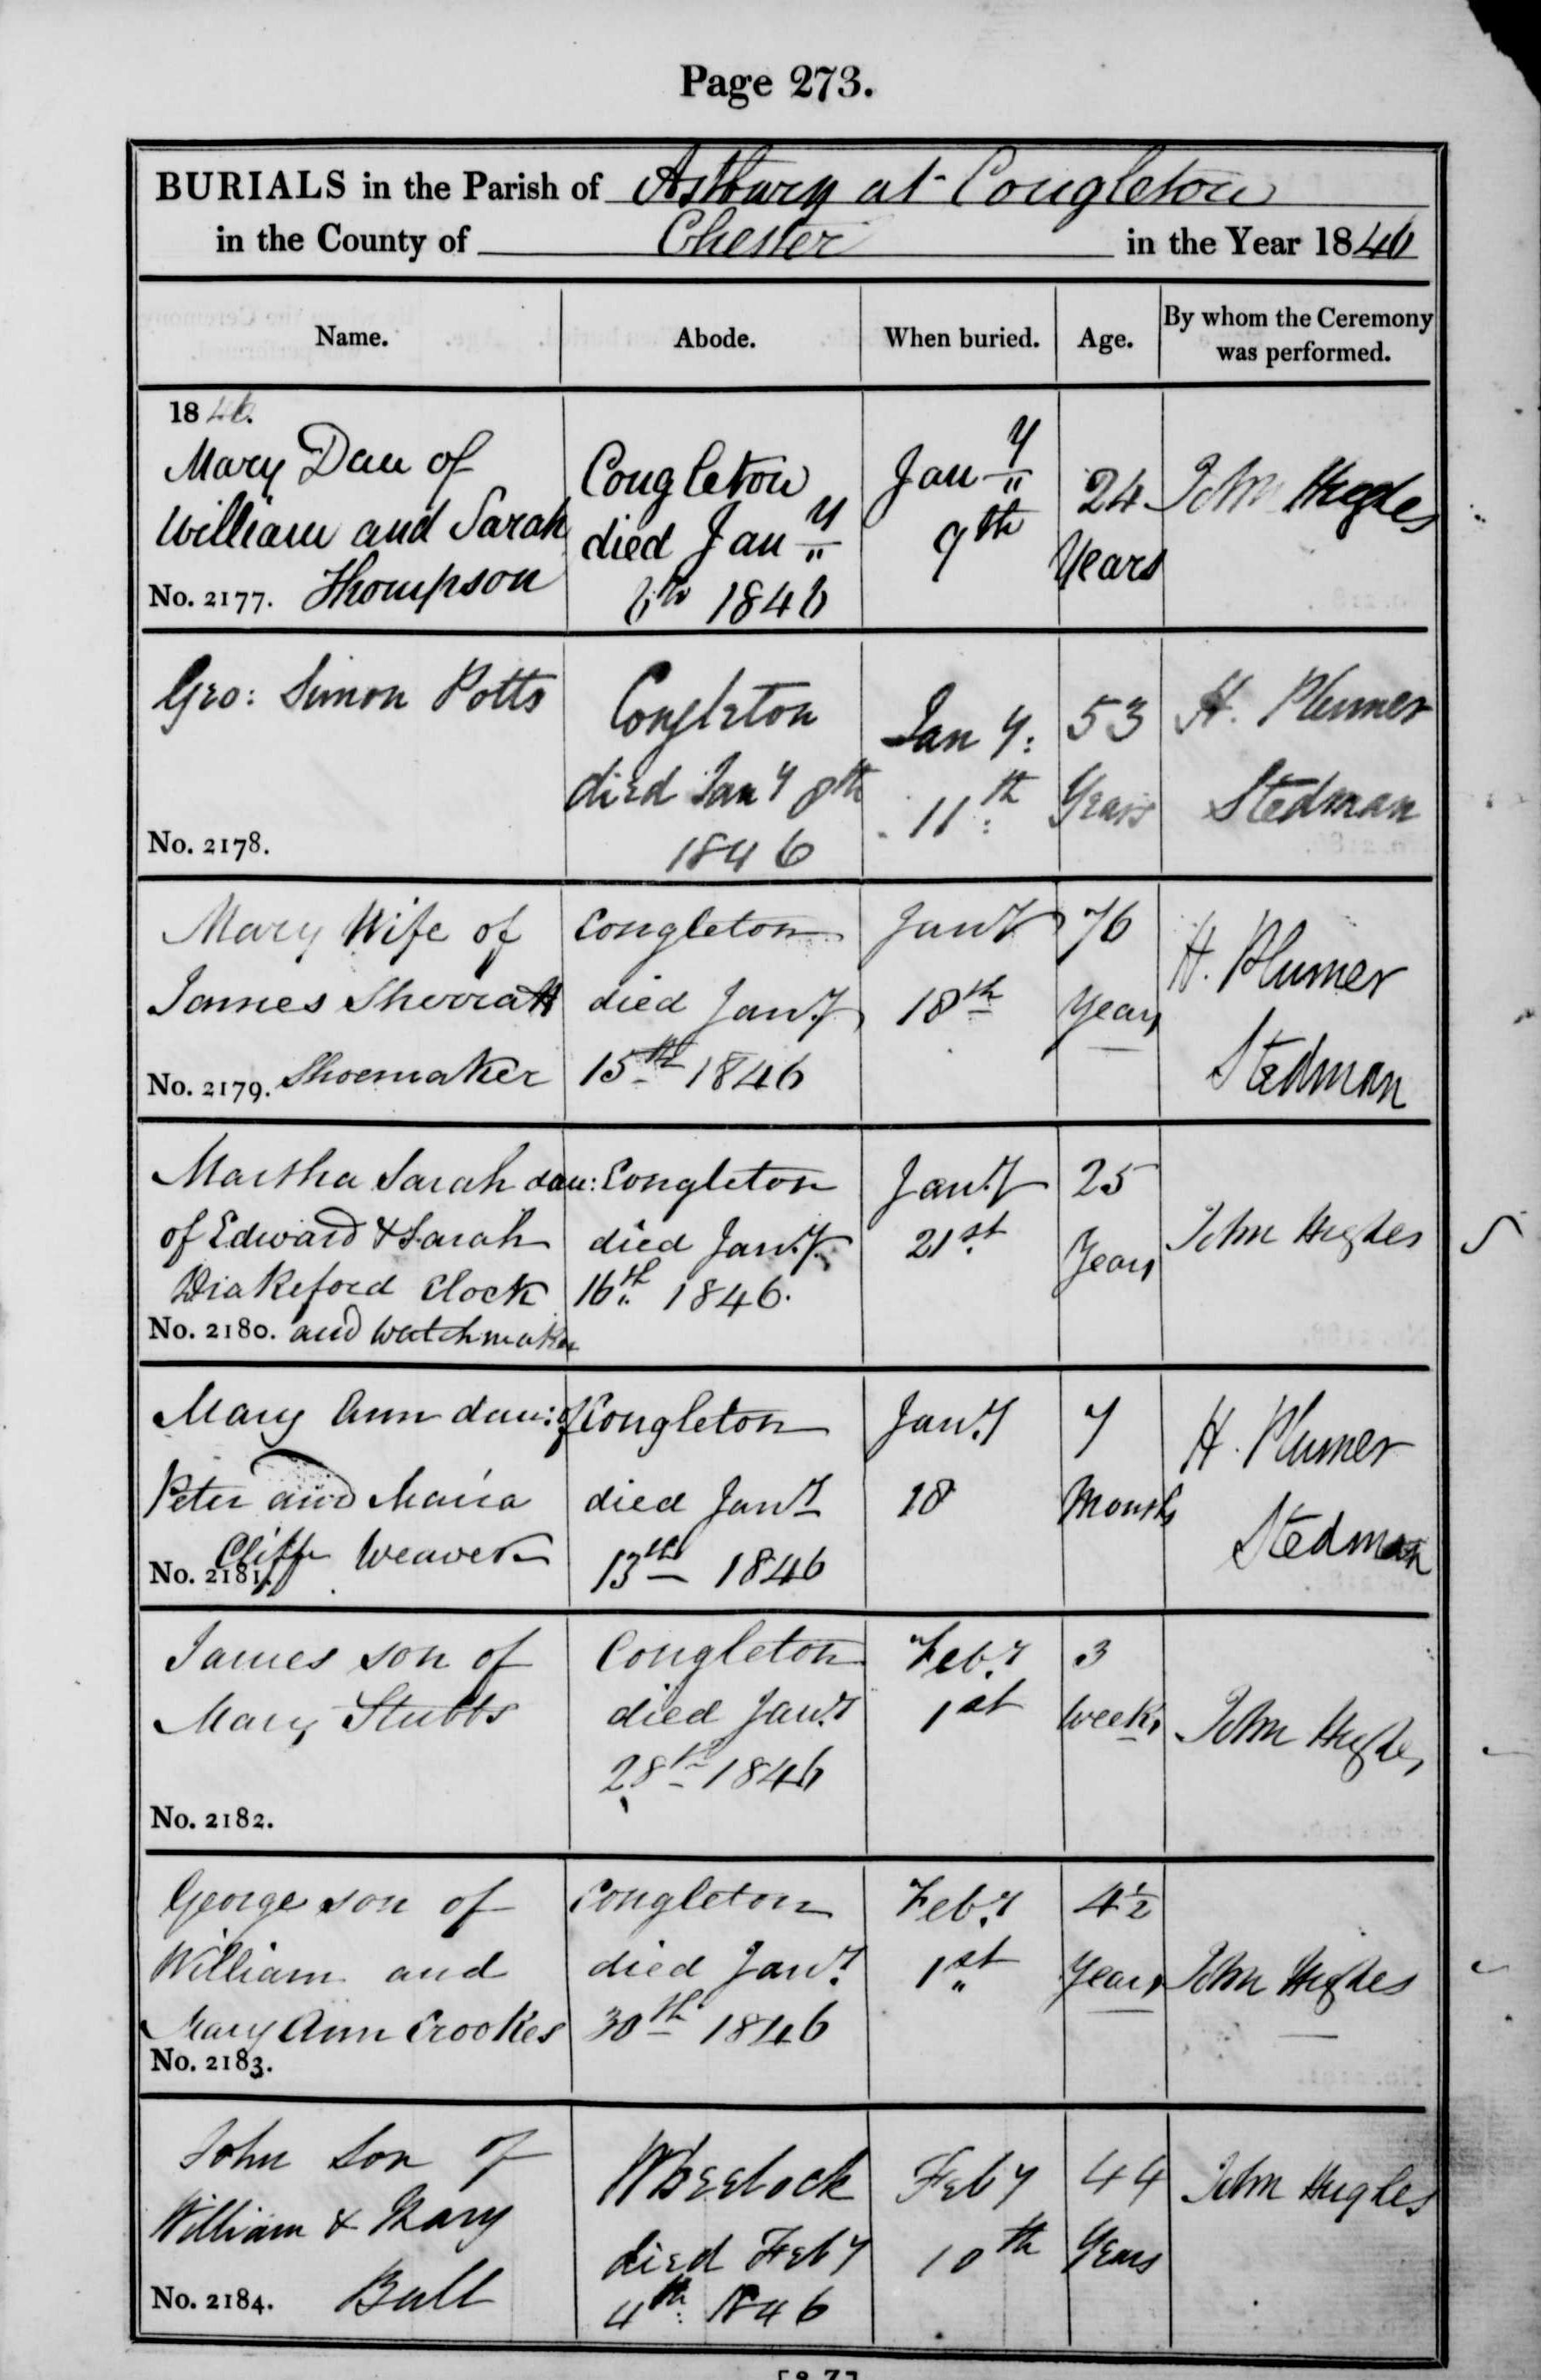 Page 273.
BURIALS in the Parish of Astbury at Congleton
in the County of Chester in the Year 1846
Name. Abode. When buried. Age. By whom the Ceremony was performed.
1846.
Mary Dau of
William and Sarah
No. 2177. Thompson
Congleton
died Jan y
6th 1846
Jan y
9th
24
Years
John Hughes
Geo: Simon Potts
No. 2178.
Congleton
died Jan y 8th
1846
Jan y:
11th
53
Years
H. Plumer
Stedman
Mary Wife of
James Sherratt
No. 2179. Shoemaker
Congleton
died Jan.y
15th 1846
Jan y
18th
76
Years
H. Plumer
Stedman
Martha Sarah dau:
of Edward & Sarah
Drakeford Clock
No. 2180. and Watchmaker
Congleton
died Jan.y
16th 1846.
Jan.y
21st
25
Years
John Hughes
Mary Ann dau: of
Peter and Maria
Cliffe Weaver
No. 2181.
Congleton
died Jan y
13th 1846
Jan.y
18
7
Months
H. Plumer
Stedman
James son of
Mary Stubbs
No. 2182.
Congleton
died Jan.y
28th 1846
Feb.y
1st
3
Weeks
John Hughes
George son of
William and
Mary Ann Crookes
No. 2183.
Congleton
died Jan.y
30th 1846
Feb.y
1st
4½
Years
John Hughes
John Son of
William & Mary
No. 2184. Bull
Wheelock
died Feb y
4th 1846
Feb y
10th
44
Years
John Hughes